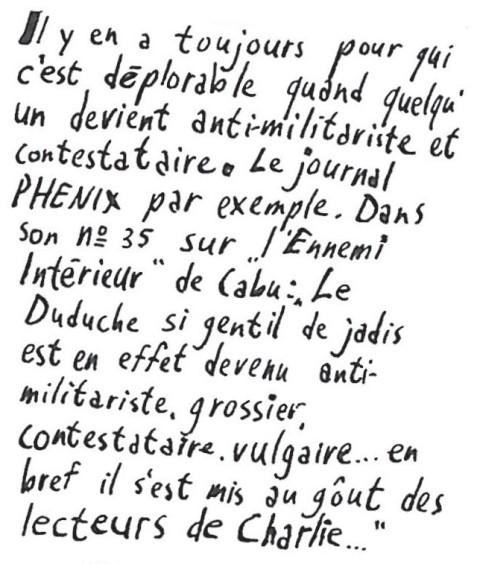 Il y en a toujours pour qui
c'est déplorable quand quelqu'
un devient anti-militariste et
contestataire. Le journal
PHENIX par exemple. Dans
son nº 35 sur „l'Ennemi
Intérieur" de Cabu: „Le
Duduche si gentil de jadis
est en effet devenu anti-
militariste, grossier,
contestataire, vulgaire... en
bref il s'est mis au gôut des
lecteurs de Charlie..."